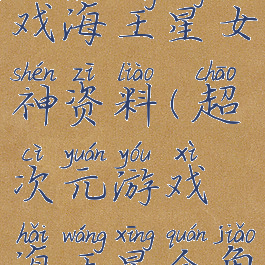 戏海王星女
shén zī liào chāo
神资料(超
cì yuán yóu xì
次元游戏
hǎi wáng xīng quán jiǎo
海王星全角